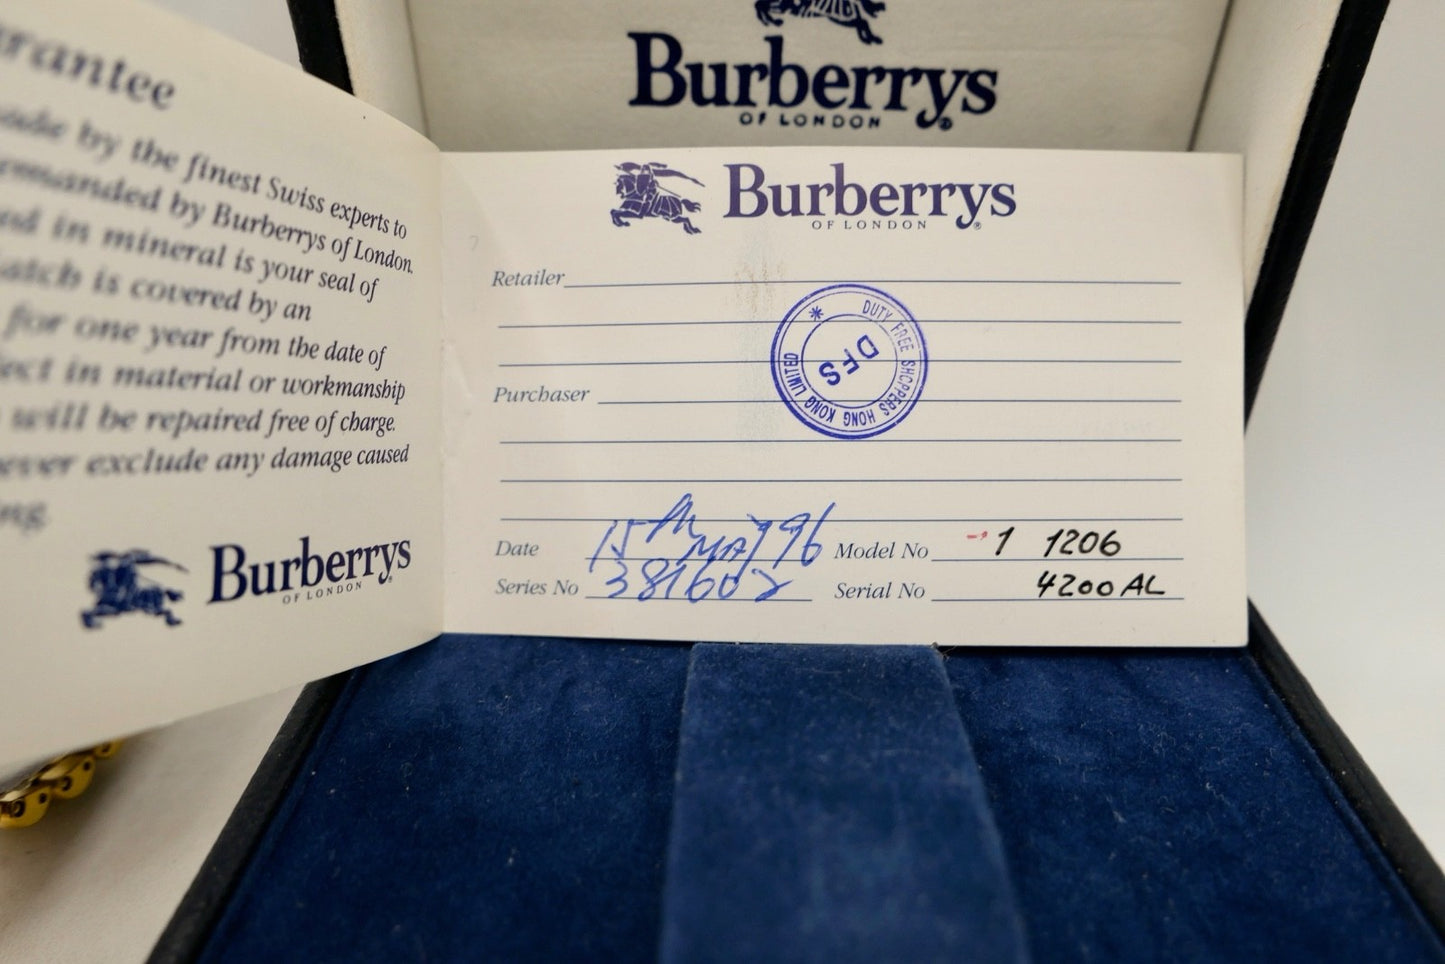 Burberrys
OF LONDON
rantee
made by the finest Swiss experts to
emanded by Burberrys of London.
in mineral is your seal of
watch is covered by an
for one year from the date of
in material or workmanship
will be repaired free of charge.
exclude any damage caused
Burberrys
OF LONDON
Burberrys
OF LONDON
Retailer
DUTY FREE SHOPPERS HONG KONG LIMITED
DFS
Purchaser
Date 15th MAY 96 Model No 1 1206
Series No 381602 Serial No 4200 AL